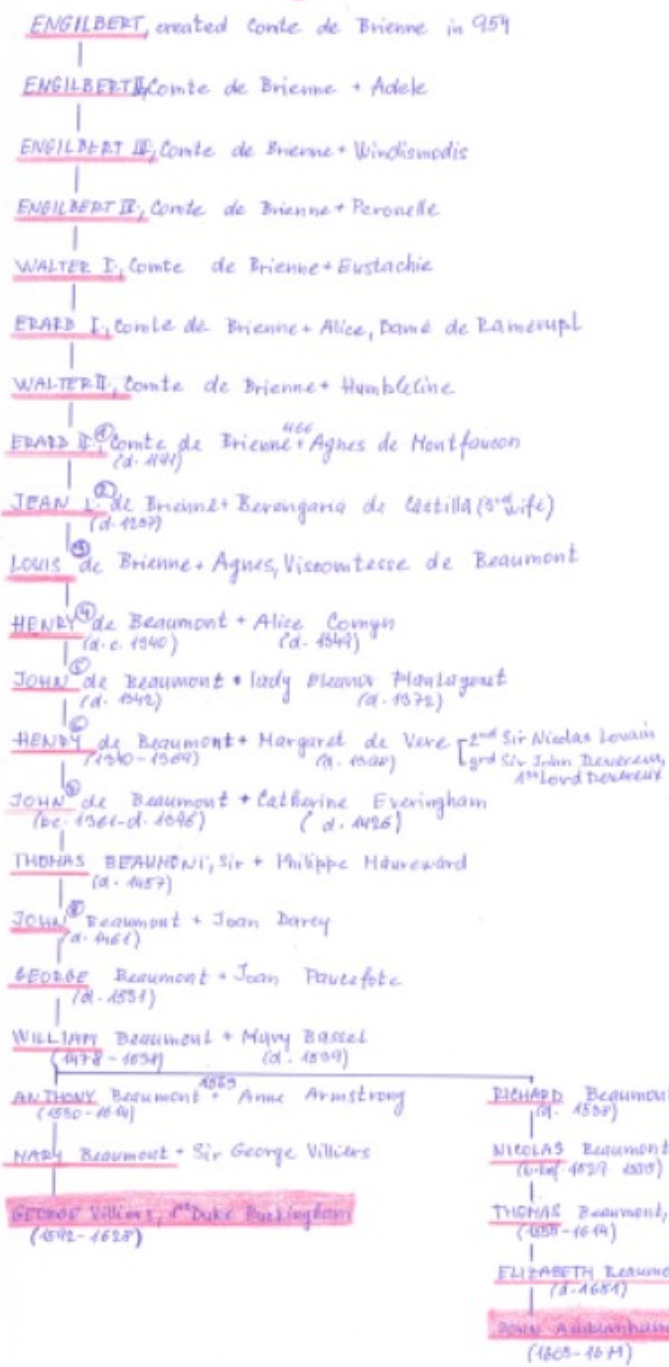 ENGILBERT, created Comte de Brienne in 954
ENGILBERT II, Comte de Brienne + Adele
ENGILBERT III, Comte de Brienne + Windismodis
ENGILBERT IV, Comte de Brienne + Peronelle
WALTER I, Comte de Brienne + Eustachie
ERARD I, Comte de Brienne + Alice, Dame de Ramerupt
WALTER II, Comte de Brienne + Humbeline
ERARD II, ① Comte de Brienne + Agnes de Montfaucon
JEAN I. ② de Brienne + Berengaria de Castilla (3rd wife)
(d. 1237)
LOUIS ③ de Brienne + Agnes, Viscomtesse de Beaumont
HENRY ④ de Beaumont + Alice Comyn
(d. c. 1340) (d. 1349)
JOHN de Beaumont + lady Eleanor Plantagenet
(d. 1342) (d. 1372)
HENRY de Beaumont + Margaret de Vere 2nd Sir Nicolas Lovain
3rd Sir John Devereux,
1st Lord Devereux
JOHN de Beaumont + Catherine Everingham
(d. 1426)
THOMAS BEAUMONT, Sir + Philippe Maureward
(d. 1457)
JOHN ⑧ Beaumont + Joan Darcy
(d. 1461)
GEORGE Beaumont + Joan Pauncefote
WILLIAM Beaumont + Mary Basset
ANTHONY Beaumont + Anne Armstrong
MARY Beaumont + Sir George Villiers
GEORGE Villiers, 1st Duke Buckingham
(1592-1628)
RICHARD Beaumont
(d. 1538)
NICOLAS Beaumont
THOMAS Beaumont,
ELIZABETH Beaumo
(d. 1651)
JOHN Ashburnham
(1603-1671)